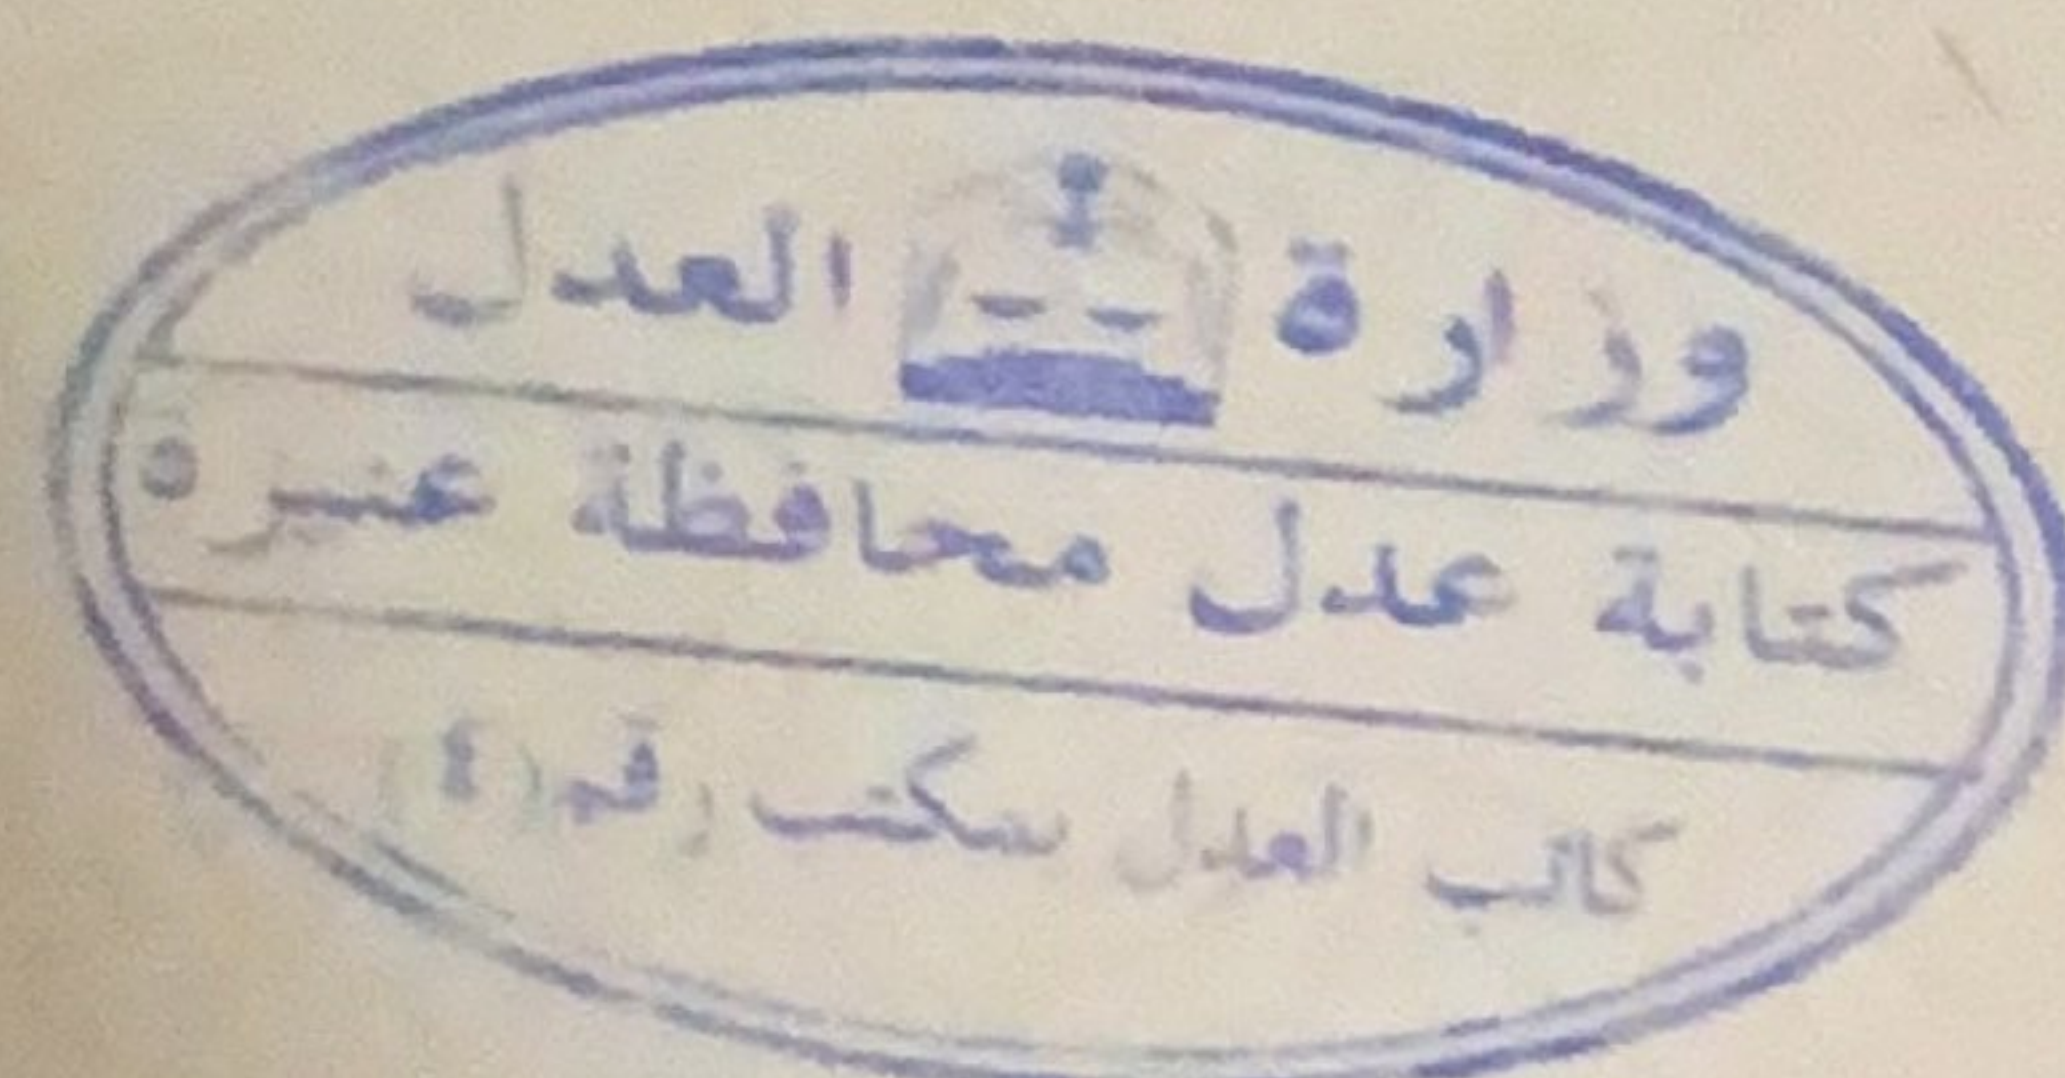 وزارة العدل
كتابة عدل محافظة عنيزة
كاتب العدل بمكتب رقم (٤)